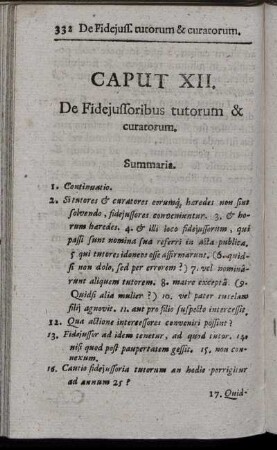 332 De Fidejuss. tutorum & curatorum.
CAPUT XII.
De Fidejussoribus tutorum &
curatorum.
Summaria.
1. Continuatio.
2. Si tutores & curatores eorumq́; haredes non sint
solvendo, fidejussores conveniuntur. 3. & ho-
rum haredes. 4. & illi loco fidejussorum, qui
passi sunt nomina sua referri in acta publica,
5 qui tutores idoneos esse affirmarunt. (6. quid-
si non dolo, sed per errorem?) 7. vel nomina-
runt aliquem tutorem. 8. matre exceptâ. (9.
Quidsi alia mulier?) 10. vel pater tutelam
filij agnovit. 11. aut pro filio suspecto intercessit.
12. Qua actione intercessores conveniri possint?
13. Fidejussor ad idem tenetur, ad quod tutor. 14.
nisi quod post paupertatem gessit. 15. non con-
nexum.
16. Cautio fidejussoria tutorum an hodie porrigatur
ad annum 25?
17. Quid-